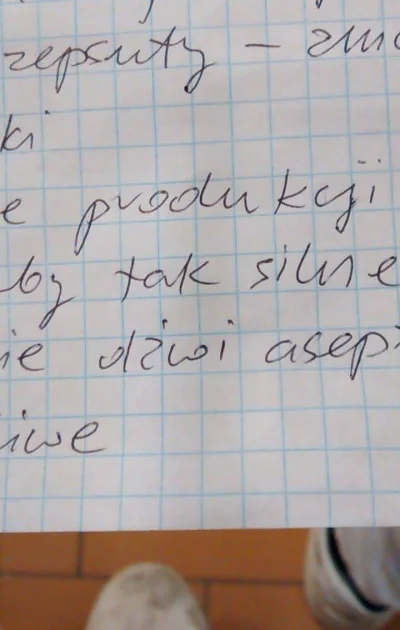 zepsuty – zmo
ki
e produkcji
by tak silne
ie dźwi asep
iwe